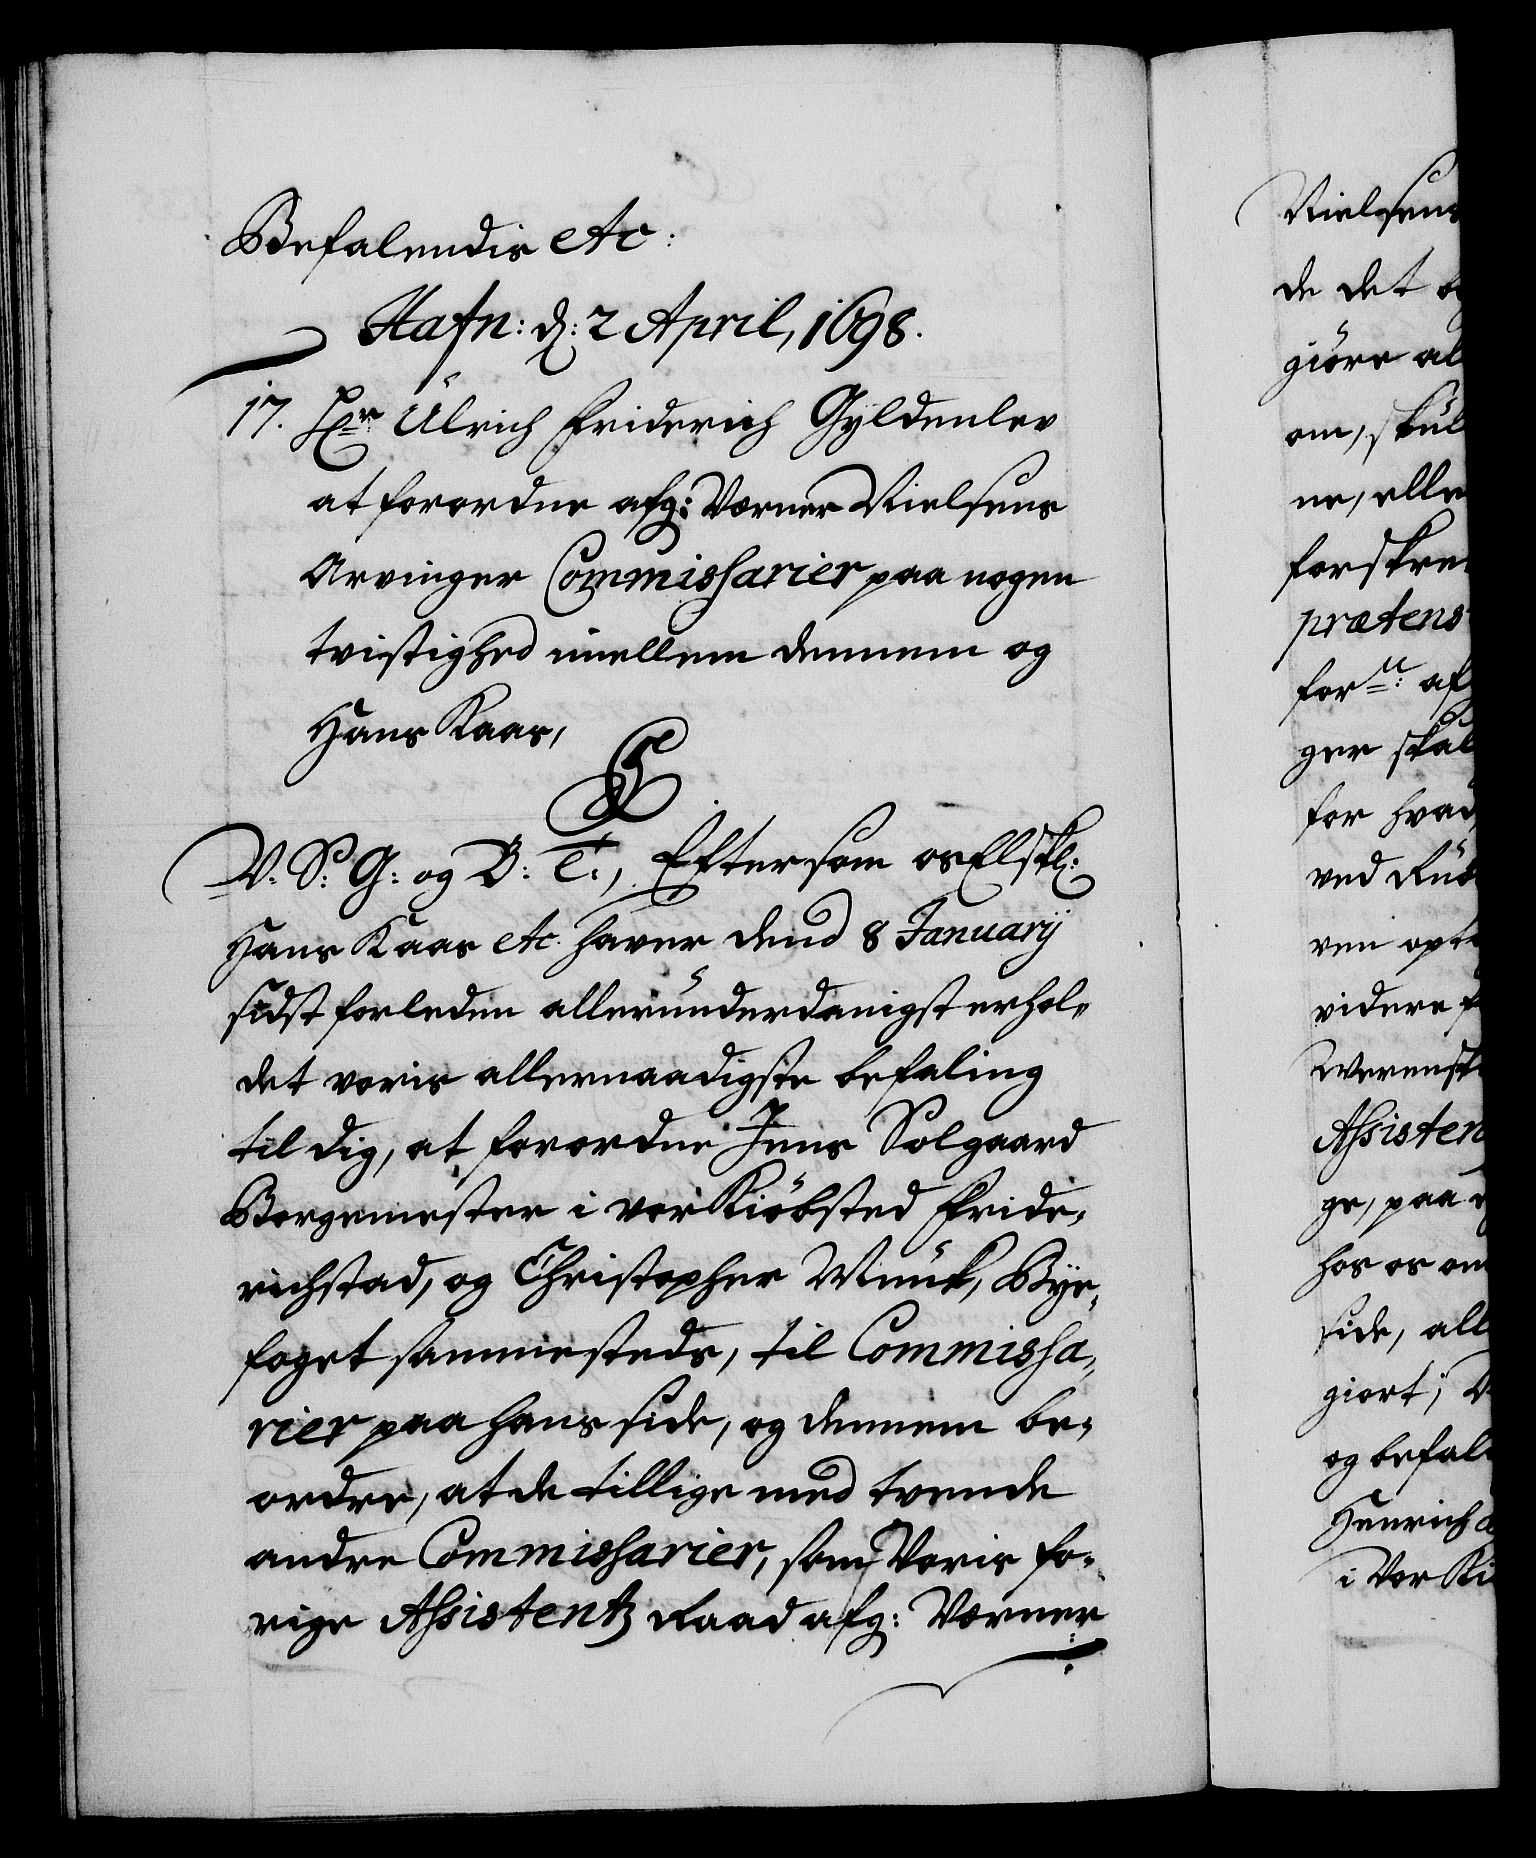 Befalendis etc:
Hafn: d: 2 April, 1698.
17. Hr Ulrich Friderich Gyldenlev
at forordne afg: Værner Nielsens
Arvinger Commissarier paa nogen
tvistighed imellem dennem og
Hans Kaas,
C5
V. S: G: og B: T:, Eftersom os Elskl:
Hans Kaas etc. haver dend 8 Januarij
sidst forleden allerunderdanigst erhol„
det voris allernaadigste befaling
til dig, at forordne Jens Solgaard
Borgemester i vor Kiöbsted Fride„
richstad, og Christopher Munk, Bye„
foget sammesteds, til Commissa„
rier paa hans side, og dennem be„
ordre, at de tillige med tvende
andre Commissarier, som Voris fo„
rige Assistentz Raad afg: Værner
Nielsens
de det
giöre al
om, skul
ne, elle
forskre
prætens
forn: af
ger skal
for hvad
ved
ven opt
videre f
Werensk
Assisten
ge, paa
hos os om
side, all
giort; V
og befal
Henrich
i Vor Ki